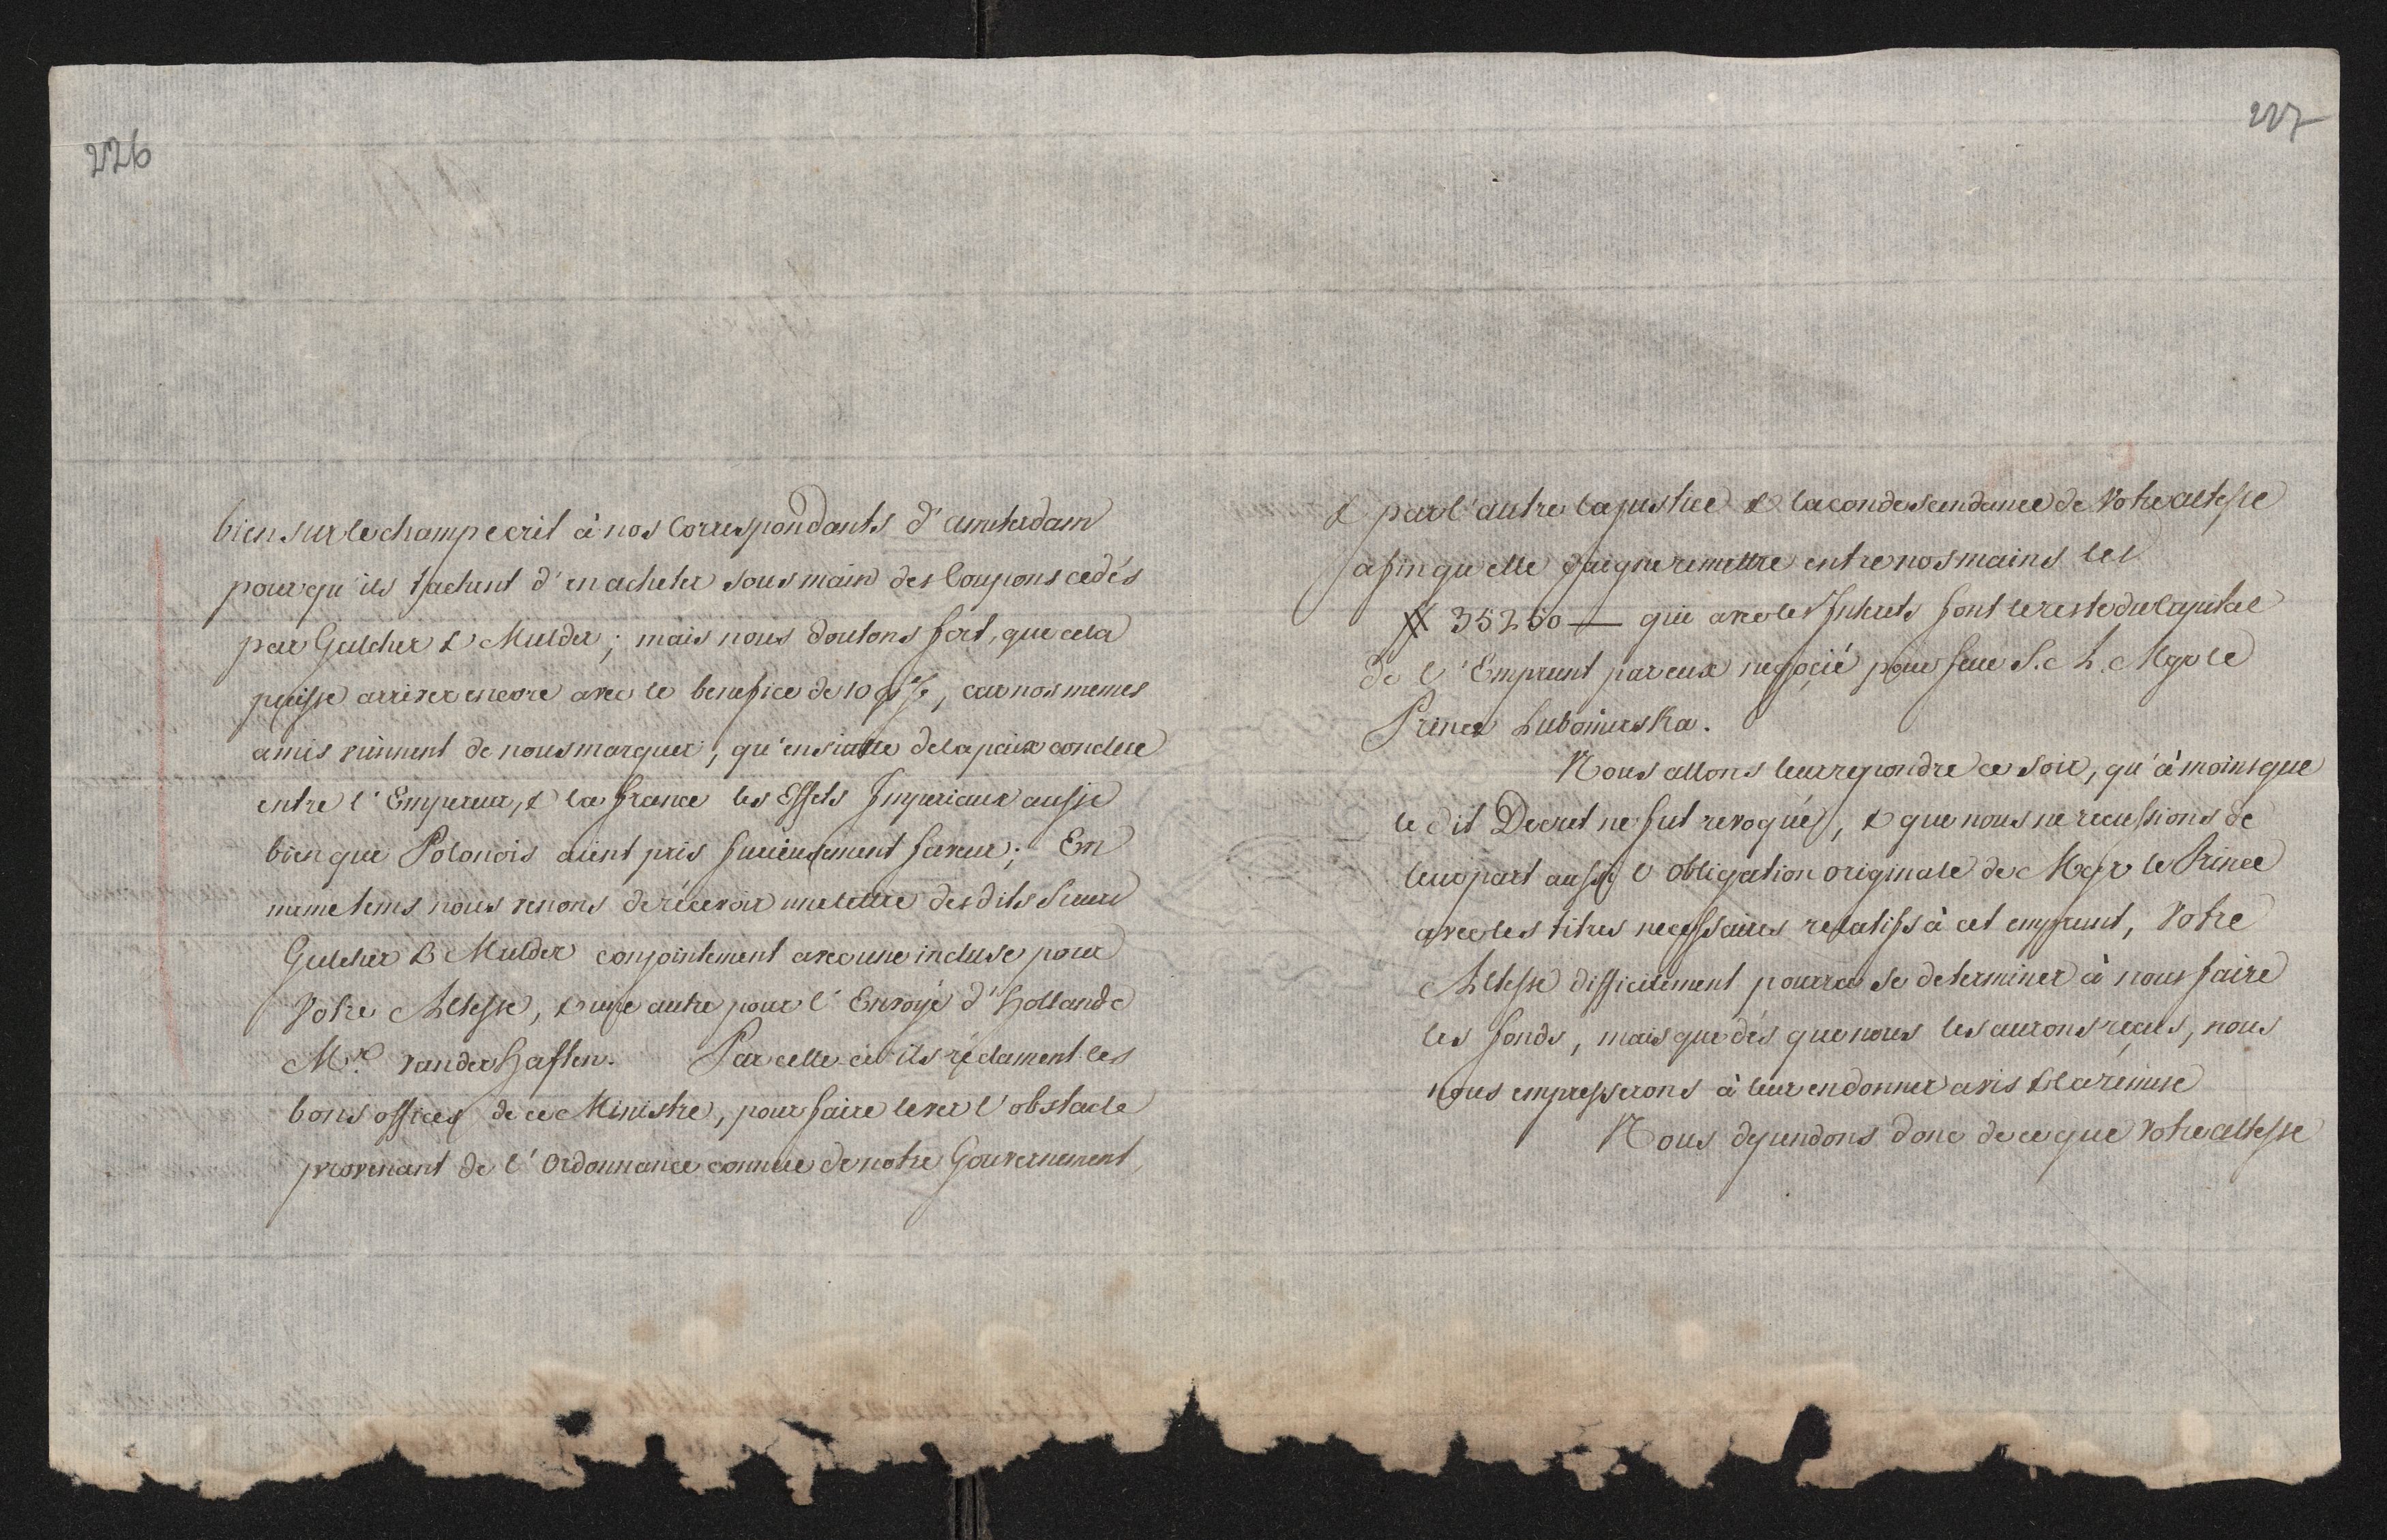 226
bien sur le champ ecrit à nos Correspondants d'amsterdam
pour qu'ils tachent d'en acheter sous main des Coupons cedés
par Gulcher & Mulder; mais nous doutons fort, que cela
puisse arriver encore avec le benefice de 10 p%, car nos memes
amis viennent de nous marquer, qu'ensuitte de la paix conclue
entre l'Empereur, & la france les Effets Imperiaux aussi
bien que Polonois aient pris furieusement faveur; En
meme tems nous venons de récevoir une lettre des dits Sieurs
Gulcher & Mulder conjointement avec une incluse pour
Votre Altesse, & une autre pour l'Envoyé d'Hollande
Mr. vander Haften. Par celle ci ils réclament les
bons offices de ce Ministre, pour faire lever l'obstacle
provenant de l'Ordonnance connue de notre Gouvernement,
227
& par l'autre la justice & la condescendance de Votre altesse
afin qu'elle daigne remettre entre nos mains les
# 35250 — qui avec les Interets font le reste du Capital
de l'Emprunt par eux negoçié pour feue S. A. Mgr le
Prince Lubomirska.
Nous allons leur repondre ce soir, qu'à moins que
le dit Decret ne fut revoqué, & que nous ne recussions de
leur part aussi l'obligation originale de Mgr le Prince
avec les titres necessaires relatifs à cet emprunt, Votre
Altesse difficilement pourra se determiner à nous faire
les fonds, mais que dés que nous les aurons reçus, nous
nous empresserons à leur en donner avis & la rémise
Nous dependons donc de ce que Votre altesse